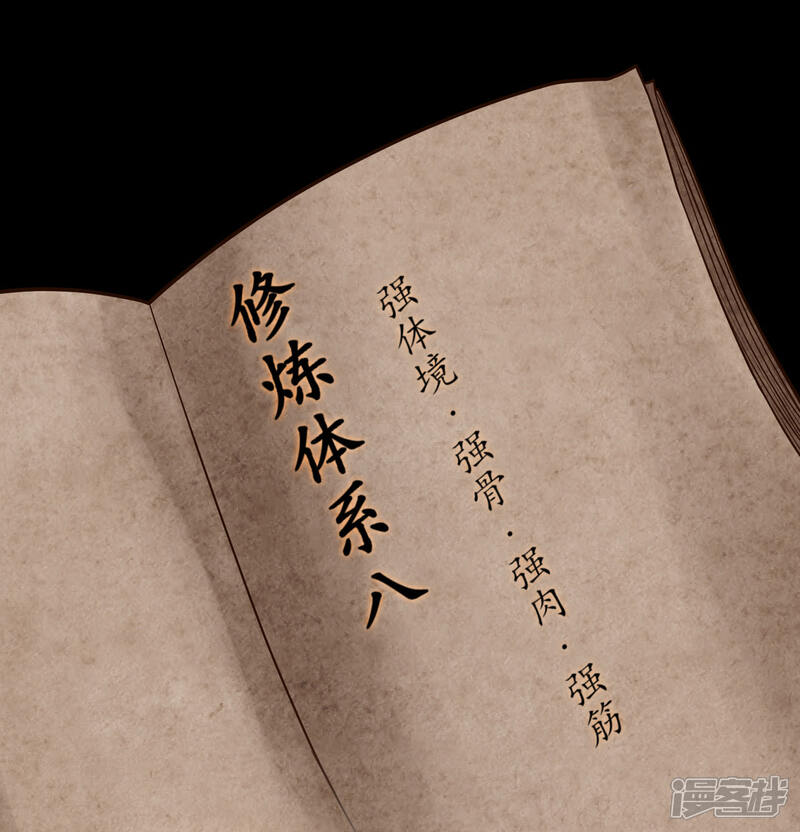 修炼体系八
强体境·强骨·强肉·强筋
漫客栈